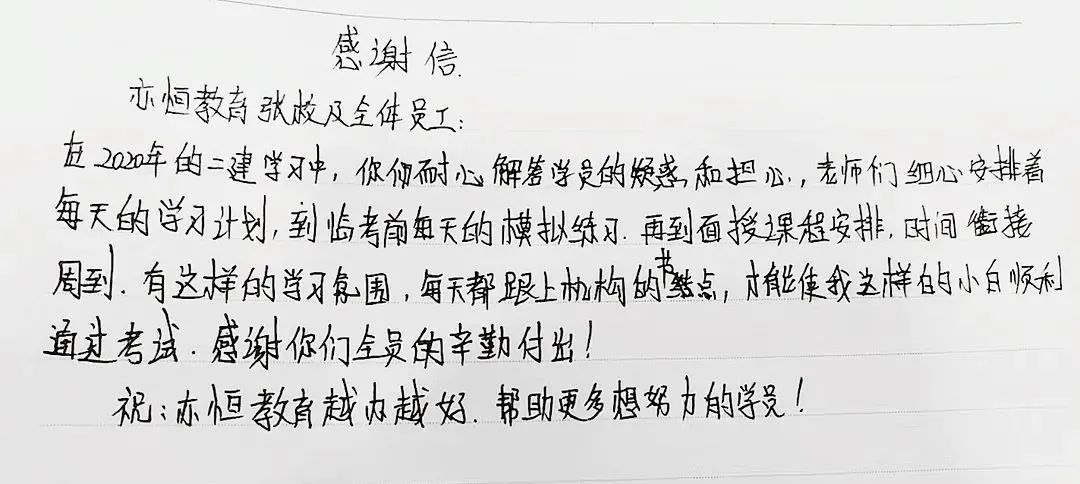 感谢信.
亦恒教育张校及全体员工:
在2020年的二建学习中,你们耐心解答学员的疑惑和担心.,老师们细心安排着
每天的学习计划,到临考前每天的模拟练习.再到面授课程安排,时间衔接
周到.有这样的学习氛围,每天都跟上机构的节点,才能使我这样的小白顺利
通过考试.感谢你们全员的辛勤付出!
祝:亦恒教育越办越好.帮助更多想努力的学员!